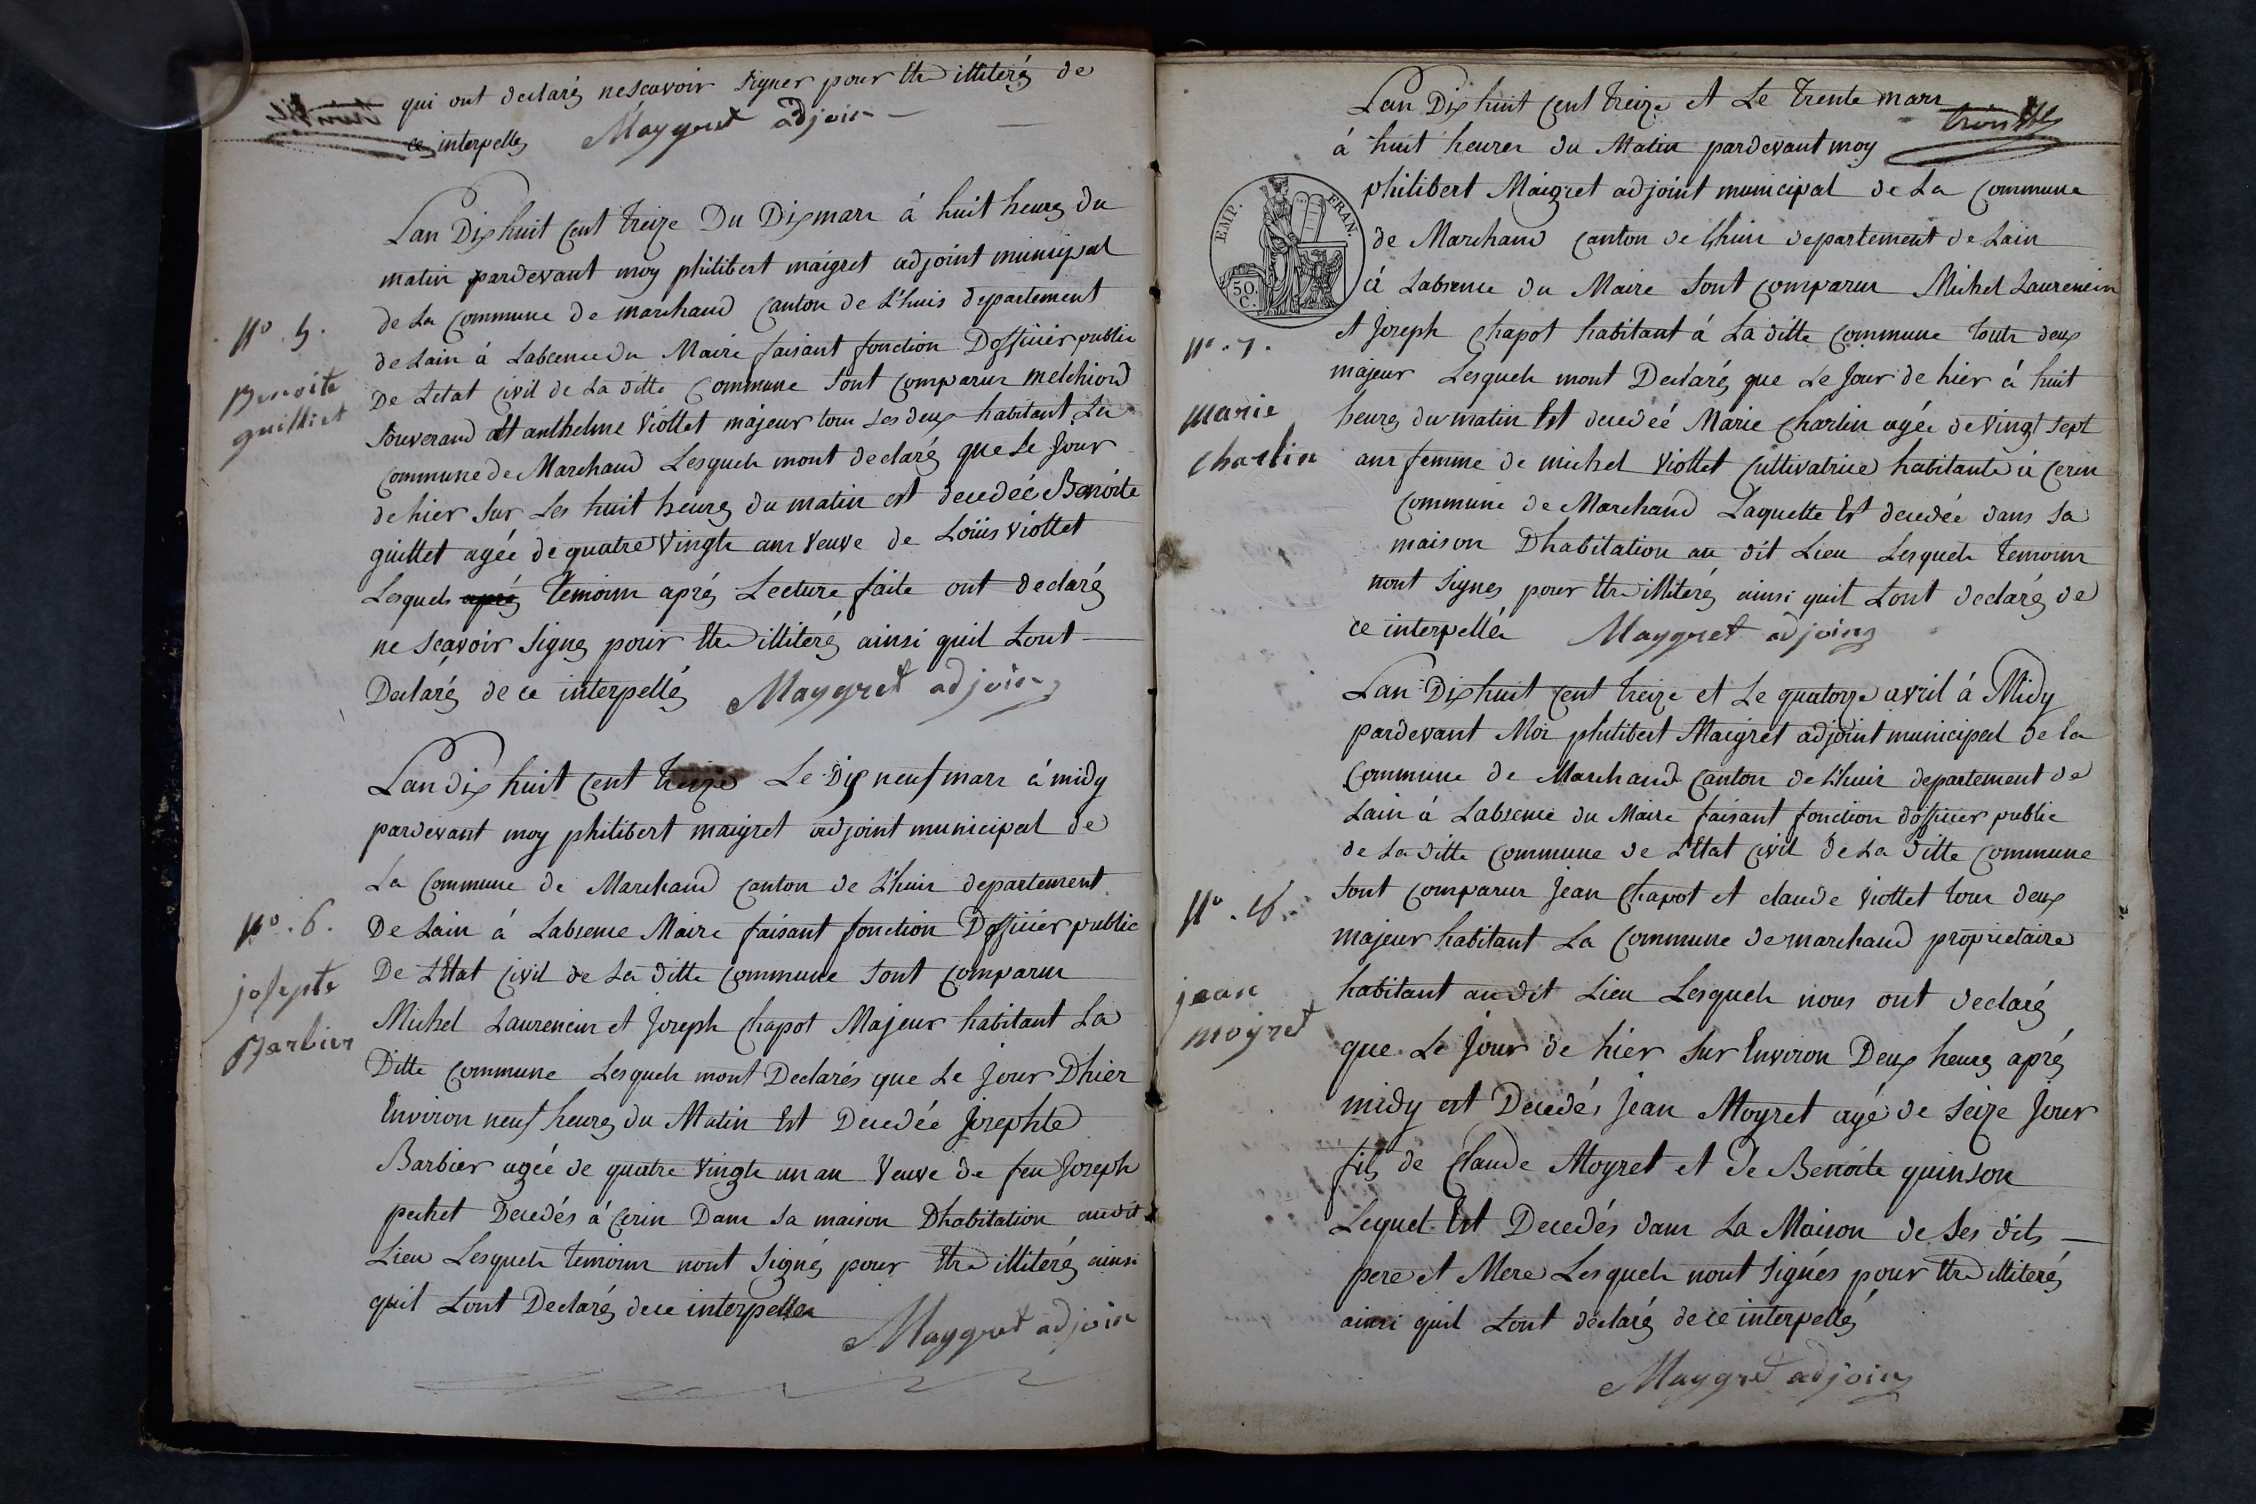 qui ont declarés nescavoir Signer pour Etre illiterés de
ce interpellés Maygret adjoin
Lan Dixhuit Cent treize Du Dix mars à huit heures du
matin pardevant moy philibert maigret adjoint municipal
de La Commune de marchand Canton de L'huis departement
de Lain à Labcence du Maire faisant fonction Dofficier public
De Letat Civil de La ditte Commune Sont Comparus melchiord
Souverand et anthelme Viollet majeur tous Les deux habitant La
Commune de Marchand Lesquels mont declaré que Le Jour
de hier Sur Les huit heures du matin est decedeé Benoite
guillet agée de quatre Vingts ans Veuve de Loüis Viollet
Lesquels aprés temoins aprés Lecture faite ont declarés
ne Scavoir Signes pour Etre illiterés ainsi quil Lont
Declarés de ce interpellés Maygret adjoin
N°. 5.
Benoite
guilliet
Lan dix huit Cent treize Le Dix neuf mars à midy
pardevant moy philibert maigret adjoint municipal de
La Commune de Marchand Canton de L'huis departement
De Lain à Labsence Maire faisant fonction Dofficier public
De L'Etat Civil de La ditte Commune Sont Comparus
Michel Laurencin et Joseph Chapot Majeur habitant La
Ditte Commune Lesquels mont Declarés que Le Jour Dhier
Environ neuf heures du Matin Est Decedée Josephte
Barbier agée de quatre Vingts un an Veuve de feu Joseph
pechet Decedés à Cerin Dans Sa maison Dhabitation audit
Lieu Lesquels temoins nont Signés pour Etre illiterés ainsi
quil Lont Declarés dece interpellés
Maygret adjoin
N°. 6.
josepte
Barbier
Lan Dix huit Cent treize et Le trente mars
à huit heures du Matin pardevant moy
philibert Maigret adjoint municipal de La Commune
de Marchand Canton de Lhuis departement de Lain
à Labsence du Maire Sont Comparus Michel Laurencin
et Joseph Chapot habitant à La ditte Commune touts deux
majeur Lesquels mont Declarés que Le Jour de hier à huit
heures du matin Est decedeé Marie Charlin agée de Vingt Sept
ans femme de michel Viollet Cultivatrice habitante à Cerin
Commune de Marchand Laquelle Est decedée dans Sa
maison Dhabitation au dit Lieu Lesquels temoins
nont Signes pour Etre illiterés ainsi quil Lont declarés de
ce interpellés Maygret adjoing
EMP. FRAN.
50. C.
N°. 7.
Marie
Charlin
Lan Dixhuit Cent treize et Le quatorze avril à Midy
pardevant Moi philibert Maigret adjoint municipal de la
Commune de Marchand Canton de L'huis departement de
Lain à Labsence du Maire faisant fonction dofficier public
de La ditte Commune de L'Etat Civil de La ditte Commune
Sont Comparus Jean Chapot et claude Viollet tous deux
majeur habitant La Commune de marchand proprietaire
habitant audit Lieu Lesquels nous ont declaré
que Le Jour de hier Sur Environ Deux heures aprés
midy est Decedés Jean Moyret agé de Seize Jours
fils de Claude Moyret et de Benoite quinson
Lequel Est Decedés dans La Maison de Ses dits
pere et Mere Lesquels nont Signés pour Etre illiterés
ainsi quil Lont declarés de ce interpellés
Maygret adjoing
jean
moyret